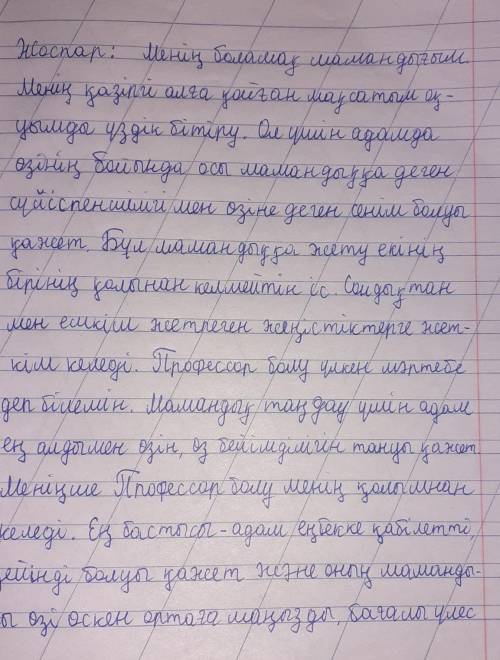 Жоспар: Менің болашақ мамандығым.
Менің қазіргі алға қойған мақсатым оқ-
уымды үздік бітіру. Ол үшін адамда
өзінің бойында осы мамандыққа деген
сүйіспеншілігі мен өзіне деген сенім болуы
қажет. Бұл мамандыққа жету екінің
бірінің қолынан келмейтін іс. Сондықтан
мен ешкім жетпеген жеңістіктерге жет-
кім келеді. Профессор болу үлкен мәртебе
деп білемін. Мамандық таңдау үшін адам
ең алдымен өзін, өз бейімділігін тануы қажет.
Меніңше Профессор болу менің қолымнан
келеді. Ең бастысы - адам еңбекке қабілетті,
ейінді болуы қажет және оның маманды-
ы өзі өскен ортаға маңызды, бағалы үлес